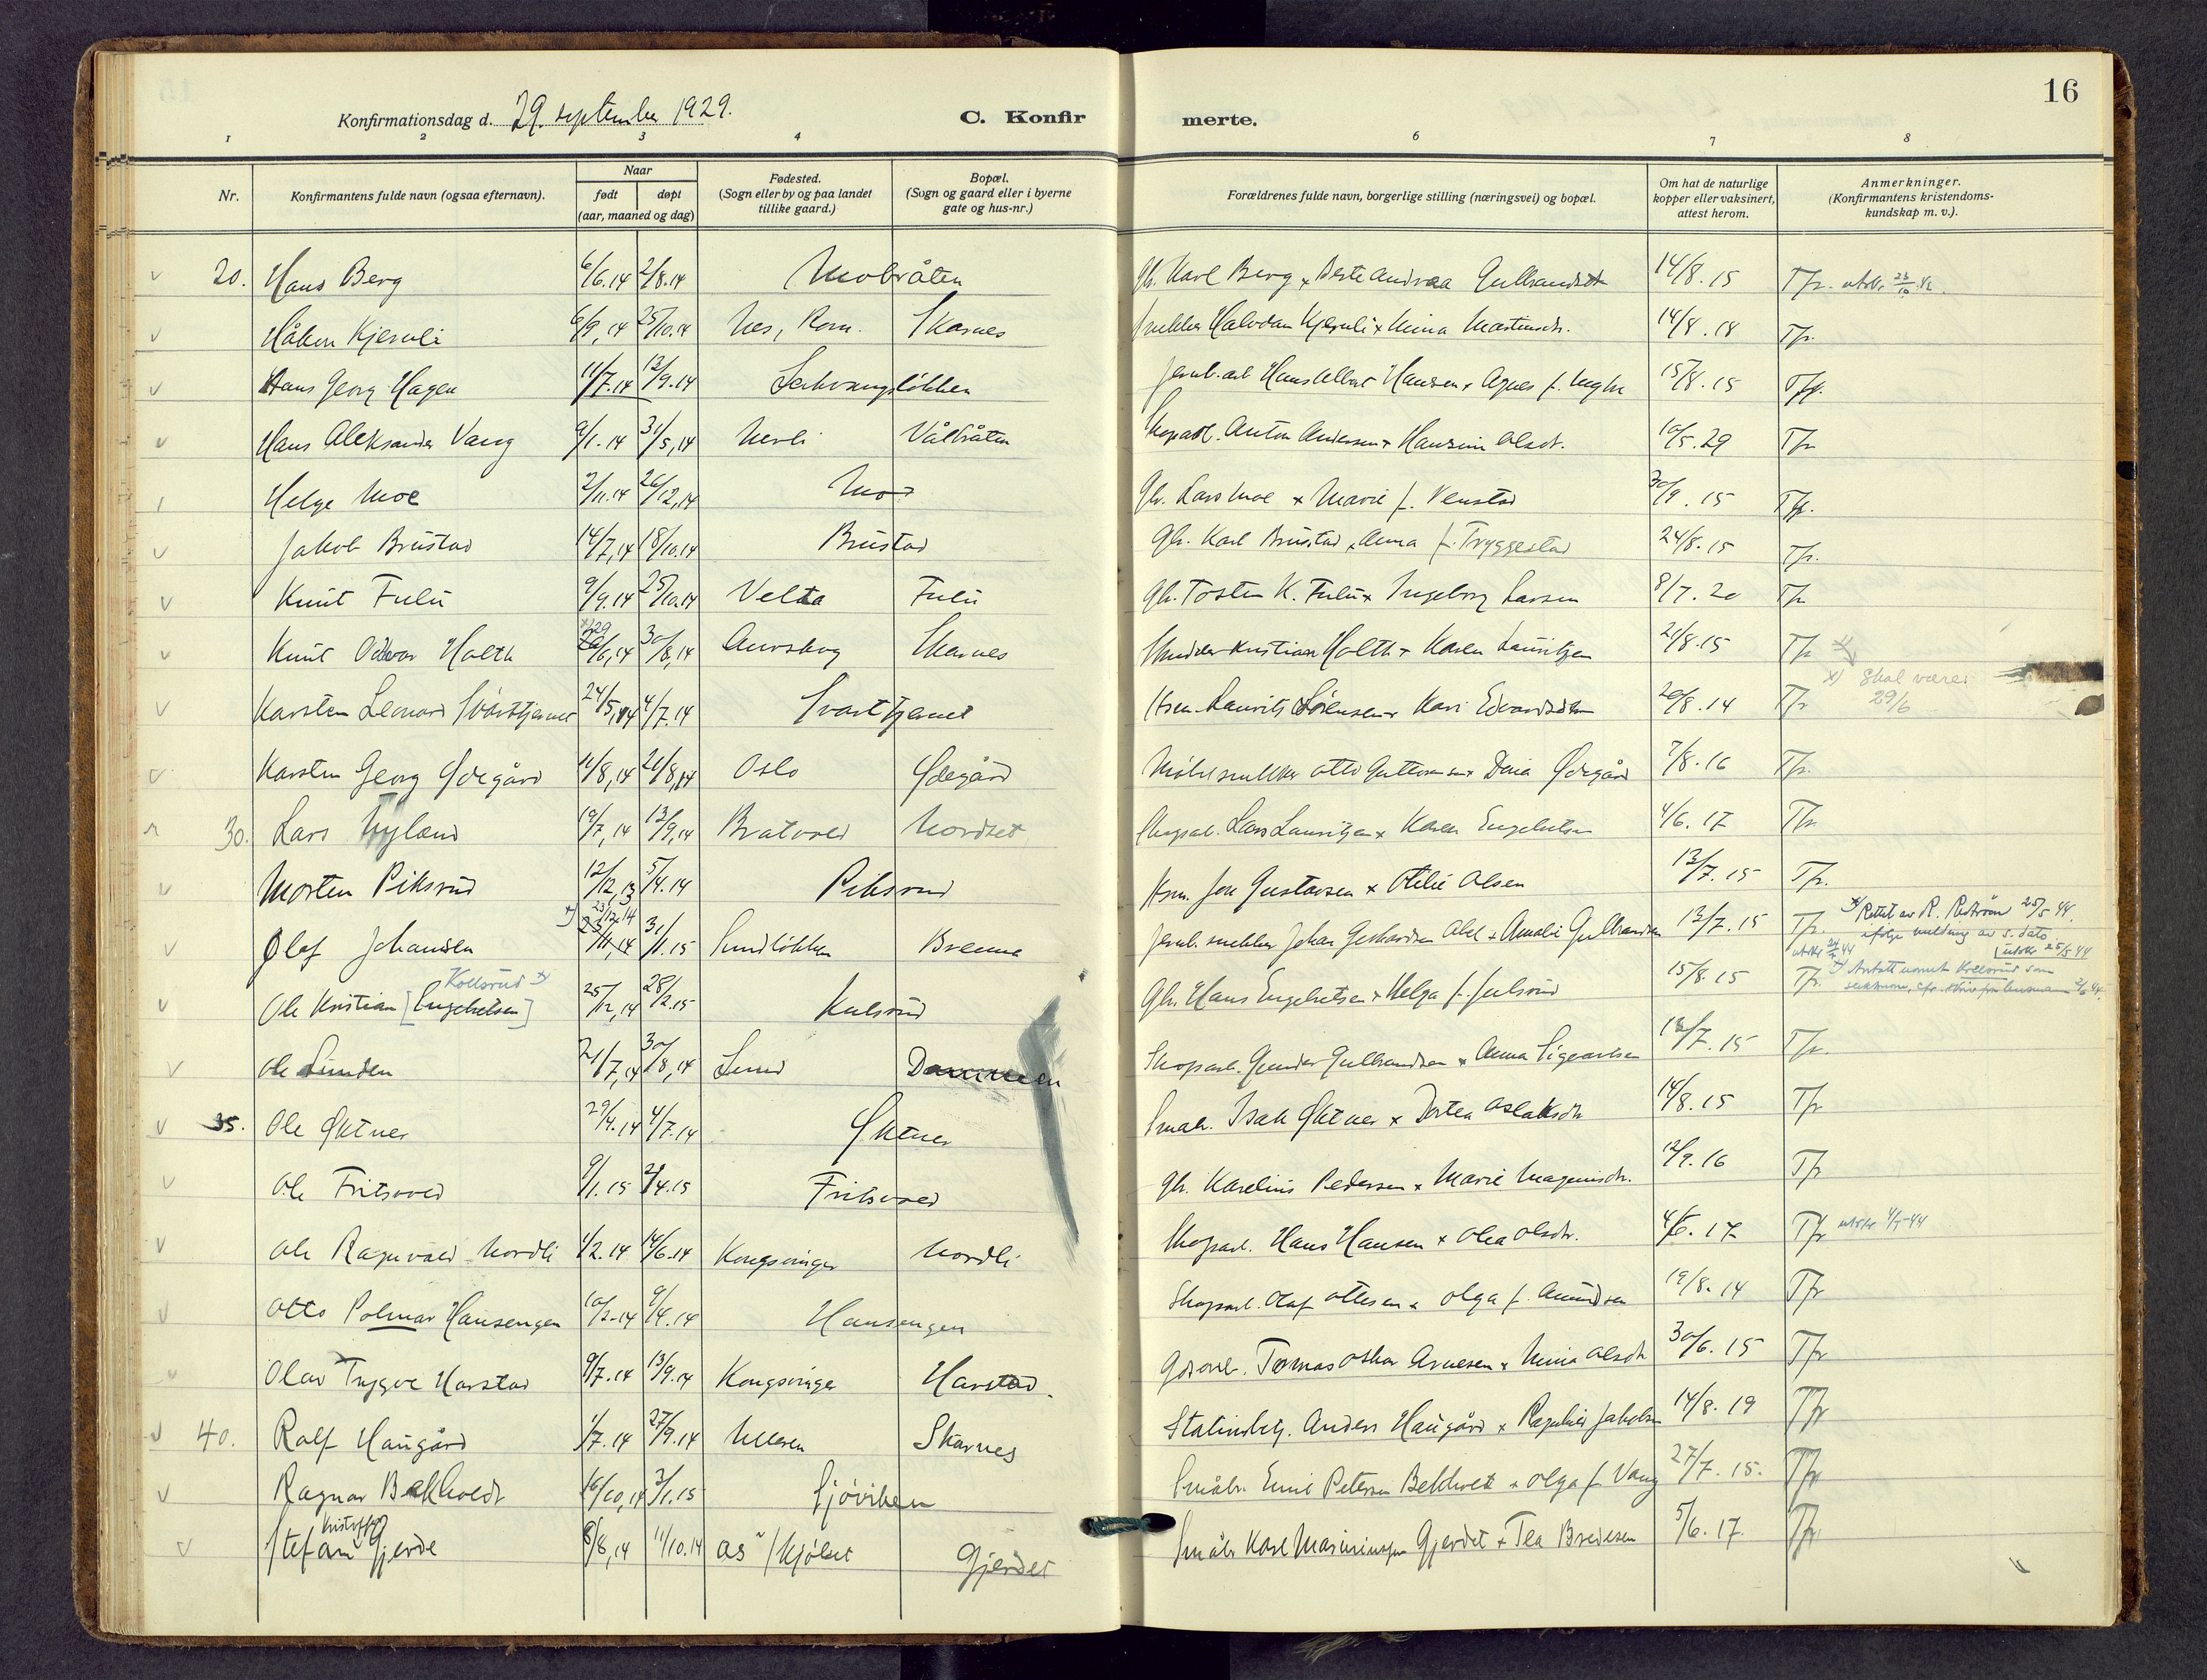 16
Konfirmationsdag d. 29. september 1929.
C. Konfirmerte.
1 2 3 4 6 7 8
Nr. Konfirmantens fulde navn (ogsaa efternavn). Naar født døpt (aar, maaned og dag) Fødested. (Sogn eller by og paa landet tillike gaard.) Bopæl. (Sogn og gaard eller i byerne gate og hus-nr.) Forældrenes fulde navn, borgerlige stilling (næringsvei) og bopæl. Om hat de naturlige kopper eller vaksinert, attest herom. Anmerkninger. (Konfirmantens kristendomskundskap m. v.).
20. Hans Berg 6/6.14 2/8.14 Mobråten Gb. Karl Berg x Berte Andrea Gulbrandsdt 14/8.15 Tfr.
Håkon Kjernli 6/9,14 25/10.14 Nes, Rom. Skarnes Halvdan Kjernli x Mina Martinsdr. 14/8.18 Tfr.
Hans Georg Hagen 11/7.14 13/9.14 Jernb.arb Hans Albert Hansen x Agnes f. 15/8.15 Tfr.
Hans Aleksander Vang 9/1.14 31/5,14 Nerli Vålbråten Anton Andersen x Hansine Olsdt. 10/5.29 Tfr
Helge Moe 2/11.14 26/12,14 Mo Gb. Lars Moe x Marie f. Venstad 30/9.15 Tfr.
Jakob Brustad 14/7,14 18/10.14 Brustad Gb. Karl Brustad x Anna f. Tryggestad 24/8.15 Tfr.
Knut Fulu 9/9.14 25/10.14 Velta Fulu Gb. Tosten K. Fulu x Ingeborg Larsen 8/7.20 Tfr
Knut Oddvar Holth 29 /6,14 30/8,14 Aurskog Skarnes Kristian Holth x Karen Lauritzen 21/8.15 Tfr x)
x) Skal være 29/6
Karsten Leonard Svarttjernet 24/5,14 4/7.14 Svarttjernet Laurits Sørensen x Kari Edvardsen 20/8.14 Tfr
Karsten Georg Ødegård 11/8,14 21/8,14 Oslo Ødegård Møbelsnekker Otto Guttormsen x Dina Ødegård 7/8.16 Tfr.
30. Lars Nyland 19/7,14 13/9,14 Bratvold Nordset Skogsarb. Lars Lauritzen x Karen Engebretsen 4/6.17 Tfr.
Morten Piksrud 12/12,13 5/4.14 Piksrud Jon Gustavsen x Otilie Olsen 13/7.15 Tfr.
Olaf Johansen x) 23/12.14 23/11,14 3/1.15 Sundløkken Brenna Jernb. snekker Johan Gerhardsen Abel x Amalie Gulbrandsen 13/7.15 Tfr.
x) Rettet av R. 25/5 44. ifølge melding av s. dato
Ole Kristian [Engebretsen] Kollsrud x) 25/12,14 28/2.15 Kulsrud Gb. Hans Engebretsen x Helga f. Julsrud 15/8.15 Tfr.
x) Antatt navnet Kollsrud som
Ole Linden 21/7,14 30/8,14 Lund Dammen Skogsarb. Gunder Gulbrandsen x Anna Sigvartsen 18/7.15 Tfr.
35. Ole Øktner 29/4.14 4/7.14 Øktner Småbr. Isak Øktner x Dortea Aslaksdr 14/8.15 Tfr
Ole Fritsvold 9/1.15 /4.15 Fritsvold Gb. Karelius Pedersen x Marie Magnusdr. 12/9.16 Tfr
Ole Ragnvald Nordli 1/2.14 14/6.14 Kongsvinger Nordli Skogsarb. Hans Hansen x Olea Olsdtr. 4/6.17 Tfr utskr 4/5-44
Otto Polmar Hansengen 10/2.14 9/4.14 Hansengen Skogsarb. Olaf Ottesen x Olga f. Amundsen 19/8.14 Tfr
Olav Trygve Harstad 9/7.14 13/9.14 Kongsvinger Harstad. Tomas Oskar Arnesen x Mina Olsdtr 30/6.15 Tfr
40. Rolf Haugård 1/7.14 27/9.14 Ulleren Skarnes Stalinsbetj. Anders Haugård x Ragnhild Jakobsen 14/8.19 Tfr
Ragnar Bekholdt 16/10,14 3/1.15 Sjøviken Småbr. Emil Petersen Bekholdt x Olga f. Vang 27/7.15. Tfr
Stefan Kristoffer Gjerde 8/8,14 11/10.14 Ås / Kjølset Gjerdet Småbr Karl Gjerdet x Tea Bredesen 5/6.17. Tfr